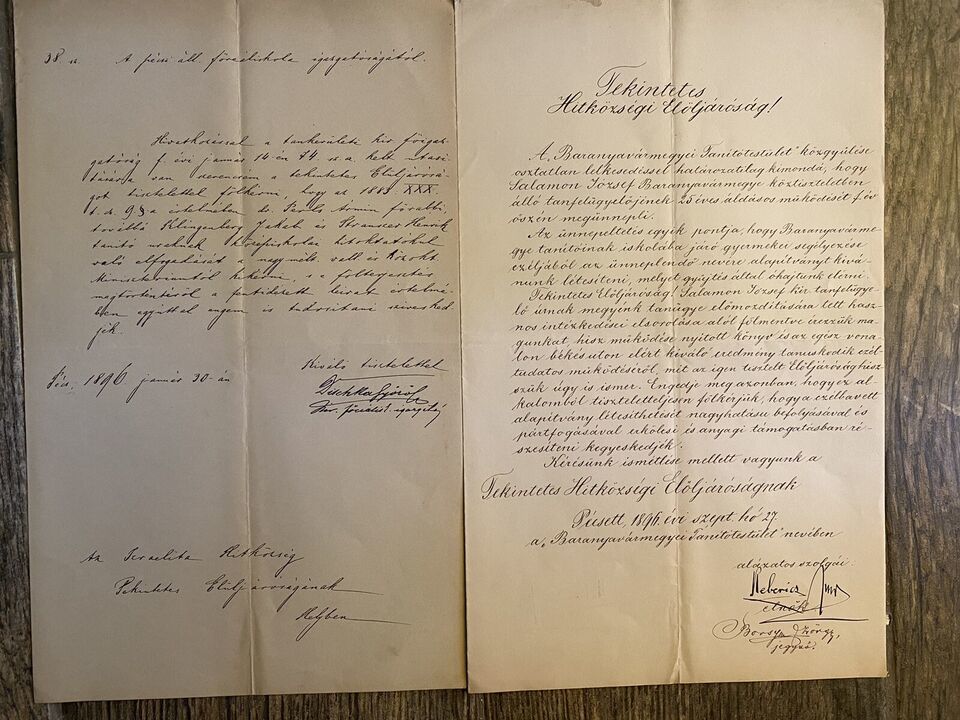 38 sz
A pécsi áll. főreáliskola igazgatóságától.
Hivatkozással a tankerületi kir. főigaz-
gatóság f. évi január 14-én 74 sz. a. kelt utasi-
tására van szerencsém a tekintetes Elüljárósá-
got tisztelettel fölkérni, hogy az 1883 XXX.
t. cz. 9 § a értelmében dr. Perls Ármin főrabbi,
továbbá Klingenberg Jakab és Strausser Henrik
tanító uraknak középiskolai hitoktatókul
való elfogadását a nagymélt. vall. és közokt.
Minisztériumtól kikérni, s a fölterjesztés
megtörténtéről a fentidézett leirat értelmé-
ben egyúttal engem is tudósítani szívesked-
jék.
Kiváló tisztelettel
Pécs, 1896 január 30-án
Dischka Győző
főreálisk. igazgató
Az Izraelita Hitközség
Tekintetes Elüljáróságának
Helyben
Tekintetes
Hitközségi Elöljáróság!
A „Baranyavármegyei Tanítótestület" közgyűlése
osztatlan lelkesedéssel határozatilag kimondá, hogy
Salamon József Baranyavármegye köztiszteletben
álló tanfelügyelőjének 25 éves áldásos működését f. év
őszén megünnepli.
Az ünnepeltetés egyik pontja, hogy Baranyavárme-
gye tanítóinak iskolába járó gyermekei segélyezése
czéljából az ünneplendő nevére alapítványt kivá-
nunk létesíteni, melyet gyűjtés által óhajtunk elérni.
Tekintetes Elöljáróság! Salamon József kir. tanfelügye-
lő úrnak megyénk tanügye előmozdítására tett hasz-
nos intézkedései elsorolása alól fölmentve érezzük ma-
gunkat, hisz működése nyitott könyv és az egész vona-
lon békés uton elért kiváló eredmény tanuskodik czél-
tudatos működéséről, mit az igen tisztelt Elöljáróság hisz-
szük úgy is ismer. Engedje meg azonban, hogy ez al-
kalomból tiszteletteljesen fölkérjük, hogy a czélbavett
alapítvány létesíthetését nagyhatásu befolyásával és
pártfogásával erkölcsi és anyagi támogatásban ré-
szesíteni kegyeskedjék.
Kérésünk ismétlése mellett vagyunk a
Tekintetes Hitközségi Elöljáróságnak
Pécsett, 1896. évi szept. hó 27.
a „Baranyavármegyei Tanítótestület" nevében
alázatos szolgái:
elnök
György,
jegyző.